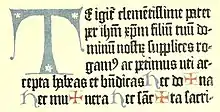 Te igit̄ clemētissime pater
per ih̄m xp̄m filiū tuū
dominū nostrū supplices ro
gamꝰ ac petimus uti ac
cepta habeas et bn̄dicas hec do✠na
hec mu✠nera hec sāc̄✠ta sacri